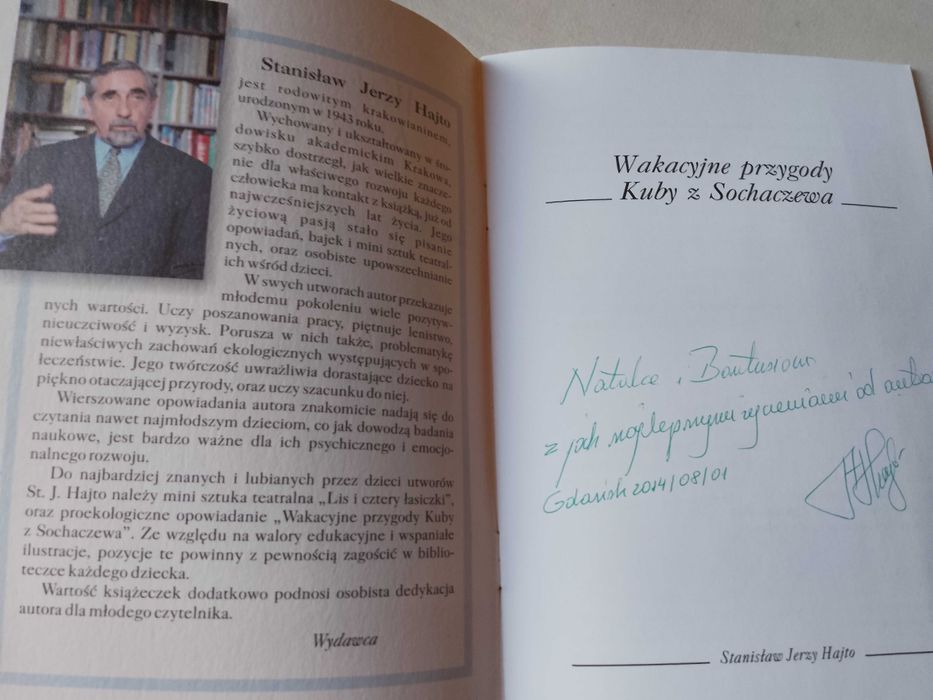 Stanisław Jerzy Hajto
jest rodowitym krakowianinem,
urodzonym w 1943 roku.
Wychowany i ukształtowany w śro-
dowisku akademickim Krakowa,
szybko dostrzegł, jak wielkie znacze-
nie dla właściwego rozwoju każdego
człowieka ma kontakt z książką, już od
najwcześniejszych lat życia. Jego
życiową pasją stało się pisanie
opowiadań, bajek i mini sztuk teatral-
nych, oraz osobiste upowszechnianie
ich wśród dzieci.
W swych utworach autor przekazuje
młodemu pokoleniu wiele pozytyw-
nych wartości. Uczy poszanowania pracy, piętnuje lenistwo,
nieuczciwość i wyzysk. Porusza w nich także, problematykę
niewłaściwych zachowań ekologicznych występujących w spo-
łeczeństwie. Jego twórczość uwrażliwia dorastające dziecko na
piękno otaczającej przyrody, oraz uczy szacunku do niej.
Wierszowane opowiadania autora znakomicie nadają się do
czytania nawet najmłodszym dzieciom, co jak dowodzą badania
naukowe, jest bardzo ważne dla ich psychicznego i emocjo-
nalnego rozwoju.
Do najbardziej znanych i lubianych przez dzieci utworów
St. J. Hajto należy mini sztuka teatralna „Lis i cztery łasiczki”,
oraz proekologiczne opowiadanie „Wakacyjne przygody Kuby
z Sochaczewa”. Ze względu na walory edukacyjne i wspaniałe
ilustracje, pozycje te powinny z pewnością zagościć w biblio-
teczce każdego dziecka.
Wartość książeczek dodatkowo podnosi osobista dedykacja
autora dla młodego czytelnika.
Wydawca
Wakacyjne przygody
Kuby z Sochaczewa
Natalce i Bartusiowi
z jak najlepszymi życzeniami od
Gdańsk 2014/08/01
Stanisław Jerzy Hajto